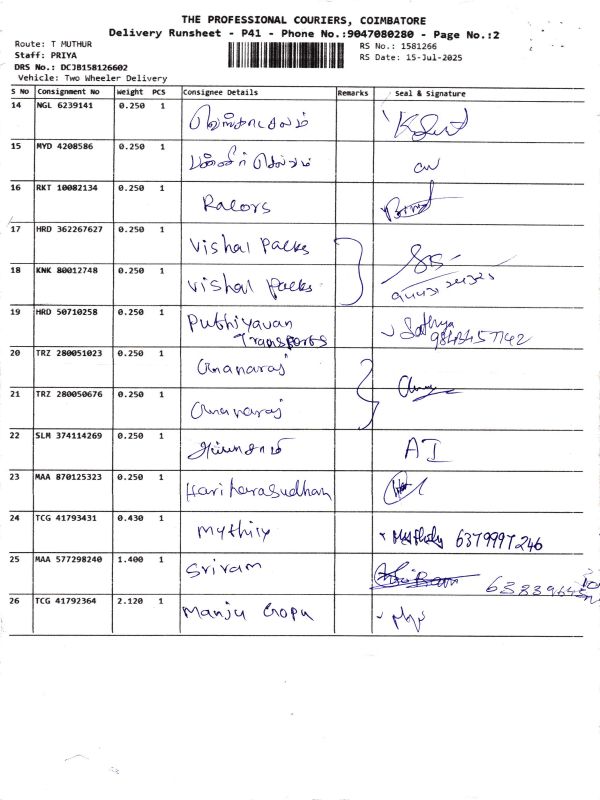 THE PROFESSIONAL COURIERS, COIMBATORE
Delivery Runsheet - P41 - Phone No.:9047080280 - Page No.:2
Route: T MUTHUR
Staff: PRIYA
DRS No.: DCJB158126602
Vehicle: Two Wheeler Delivery
RS No.: 1581266
RS Date: 15-Jul-2025
S No Consignment No Weight PCS Consignee Details Remarks Seal & Signature
14 NGL 6239141 0.250 1
15 MYD 4208586 0.250 1
16 RKT 10082134 0.250 1 Racors
17 HRD 362267627 0.250 1 Vishal Packs
18 KNK 80012748 0.250 1 Vishal Packs
19 HRD 50710258 0.250 1 Puthiyavan Transports Sathya
20 TRZ 280051023 0.250 1 Gnanaraj
21 TRZ 280050676 0.250 1 Gnanaraj
22 SLM 374114269 0.250 1 AI
23 MAA 870125323 0.250 1 Hariharasudhan
24 TCG 41793431 0.430 1 Mythily 6379997246
25 MAA 577298240 1.400 1 Sriram
26 TCG 41792364 2.120 1 Manju Gopu